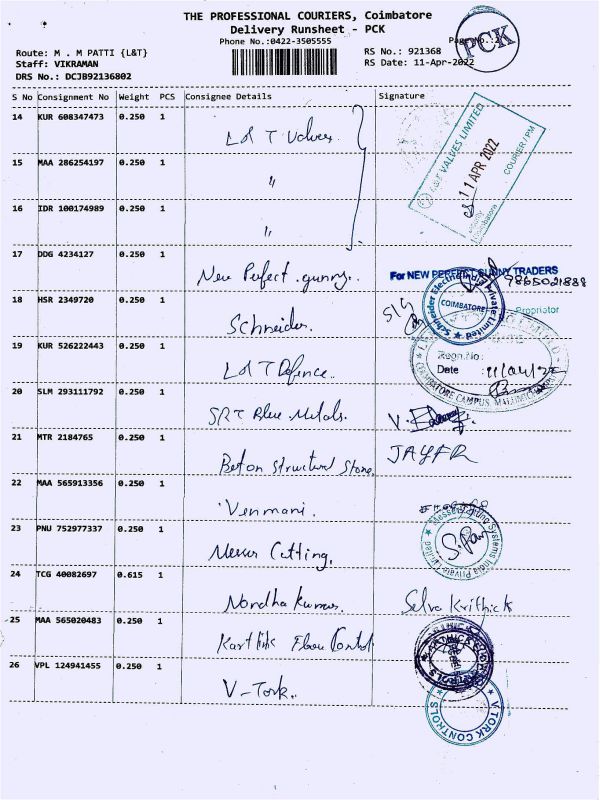 THE PROFESSIONAL COURIERS, Coimbatore
Delivery Runsheet - PCK
Phone No.:0422-3505555
PCK
Route: M . M PATTI {L&T}
RS No.: 921368
Staff: VIKRAMAN
RS Date: 11-Apr-2022
DRS No.: DCJB92136802
S No Consignment No Weight PCS Consignee Details Signature
14 KUR 608347473 0.250 1
L&T Valves
L&T VALVES LIMITED
11 APR 2022
COURIER / PM
15 MAA 286254197 0.250 1
"
16 IDR 100174989 0.250 1
"
17 DDG 4234127 0.250 1
New Perfect gunny.
For NEW PERFECT GUNNY TRADERS
9865021888
Proprietor
18 HSR 2349720 0.250 1
Schneider.
Schneider Electric India Private Limited
COIMBATORE
19 KUR 526222443 0.250 1
L&T Defence.
Regn.No:
Date
COIMBATORE CAMPUS, MALUMICHAMPATTI
20 SLM 293111792 0.250 1
SRT Blue Metals.
21 MTR 2184765 0.250 1
Beton Structural Stone.
22 MAA 565913356 0.250 1
Venmani.
23 PNU 752977337 0.250 1
Messer Cutting.
Messer Cutting Systems India Private Limited
24 TCG 40082697 0.615 1
Nandha Kumar.
Selva Krithick
25 MAA 565020483 0.250 1
Karthik Flow Control
26 VPL 124941455 0.250 1
V-Tork.
V TORK CONTROLS